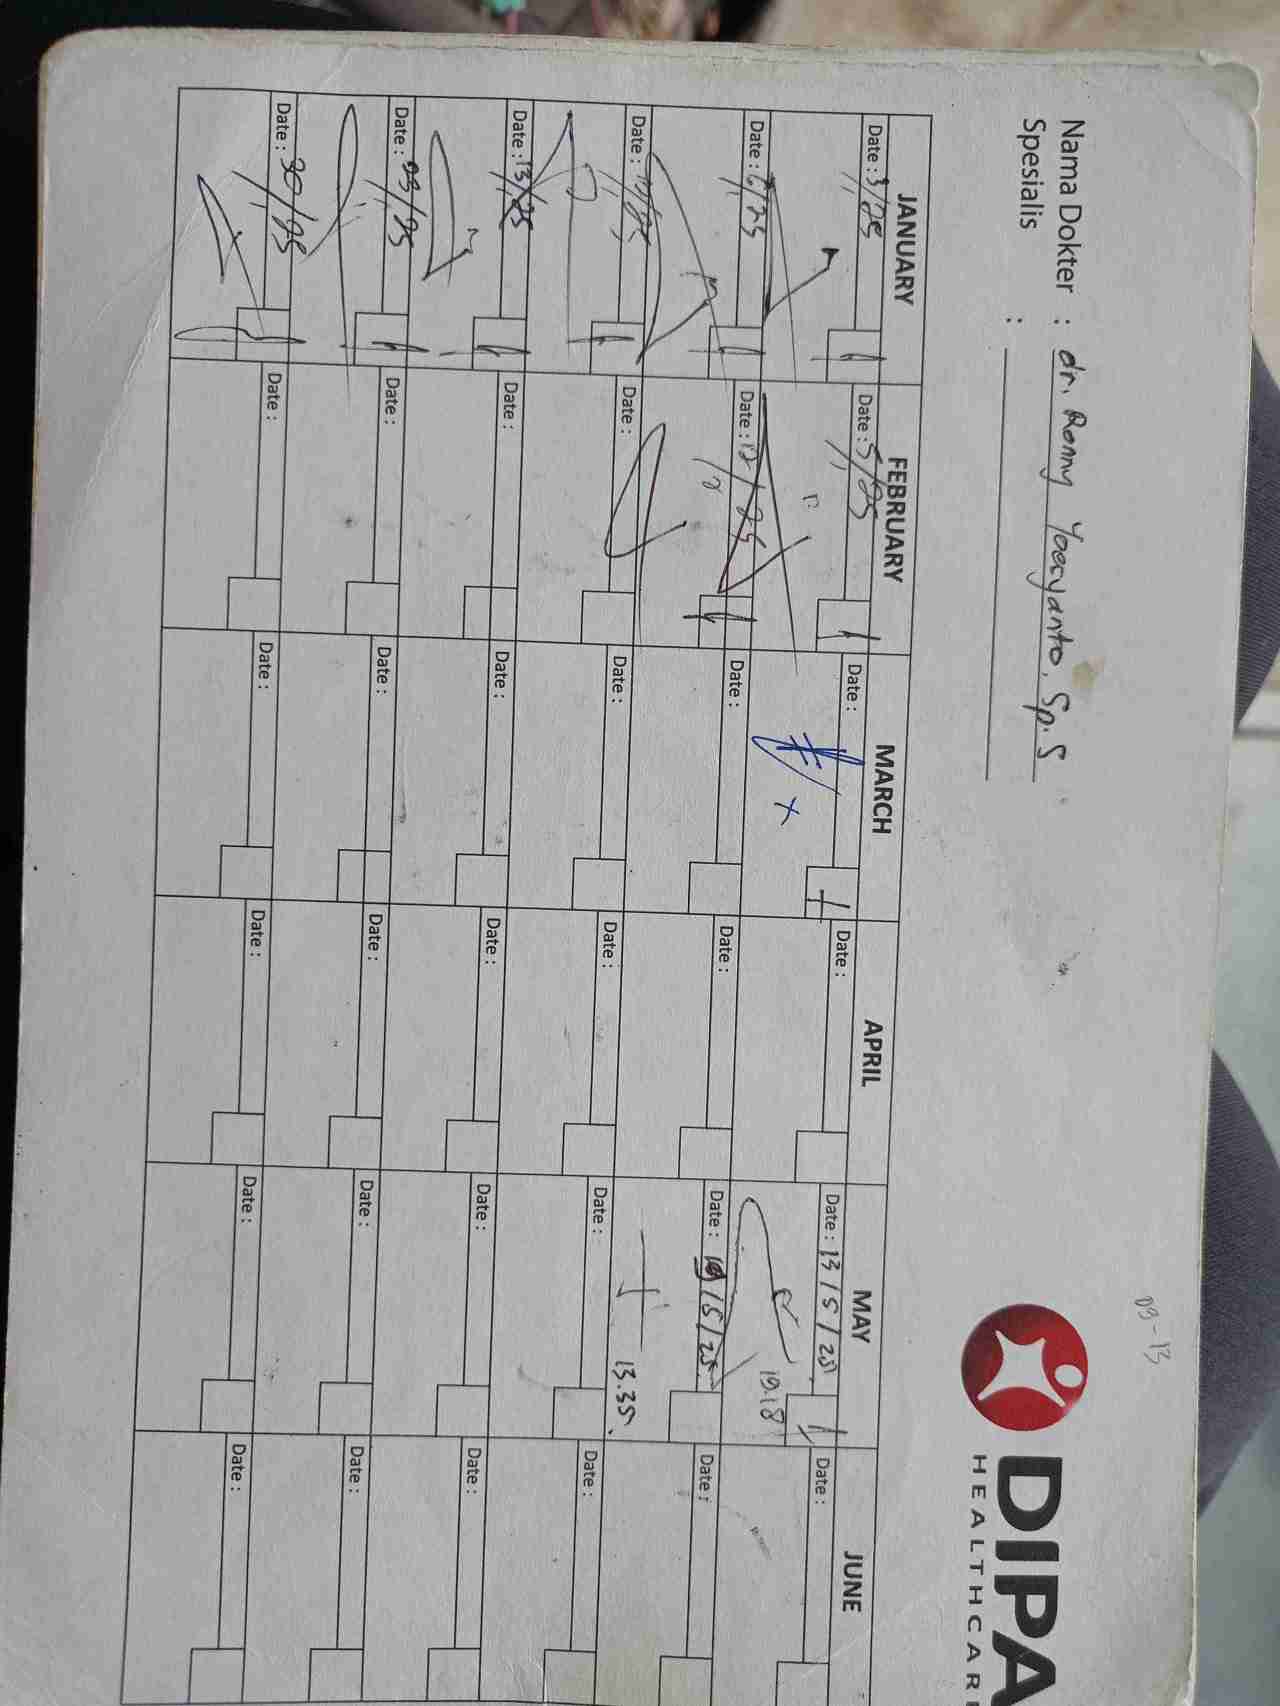 DIPA
HEALTHCAR
09-13
Nama Dokter : dr. Ronny Yoesyanto, Sp.S
Spesialis :
JANUARY FEBRUARY MARCH APRIL MAY JUNE
Date : 3/25 Date : 5/25 Date : Date : Date : 13/5/25 Date :
19.18
Date : 6/25 Date : 12/25 Date : Date : Date : 19/5/25 Date :
2
13.35
Date : Date : Date : Date : Date : Date :
Date : 13/25 Date : Date : Date : Date : Date :
Date : 23/25 Date : Date : Date : Date : Date :
Date : 30/25 Date : Date : Date : Date : Date :